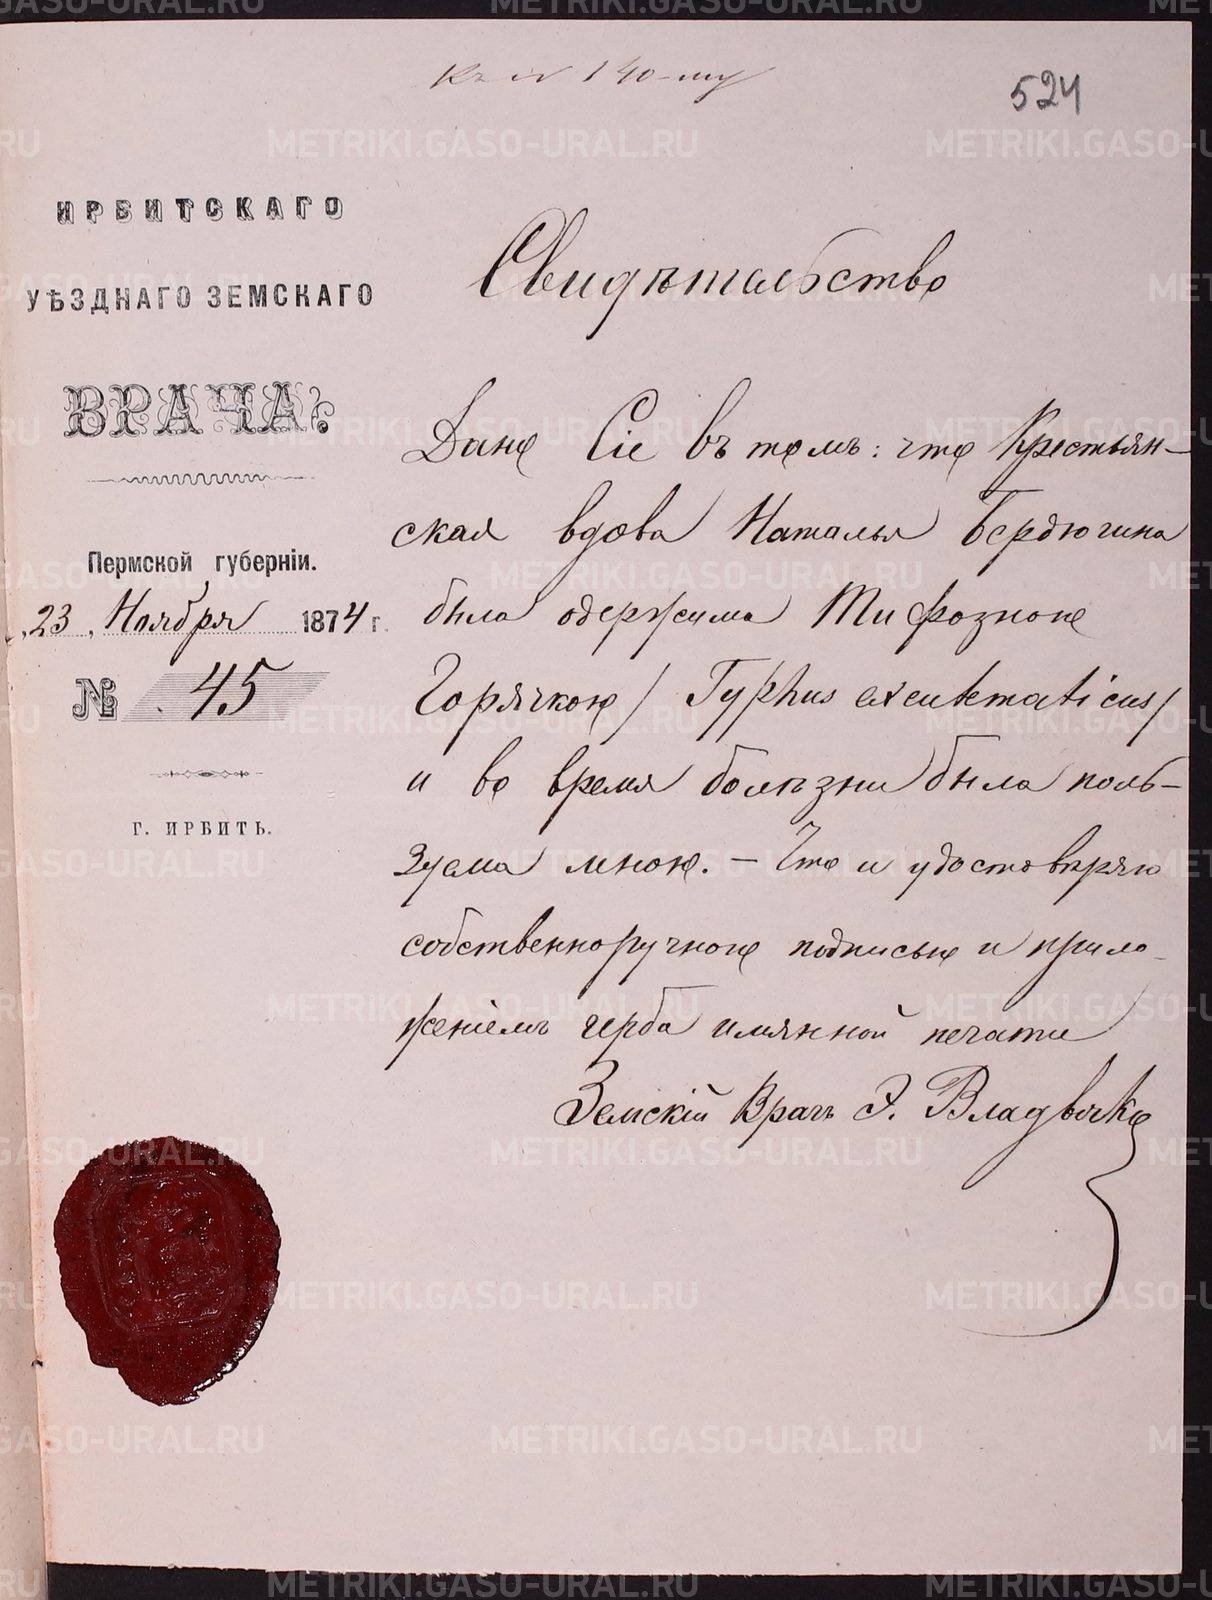 Къ № 140-му
524
ИРБИТСКАГО
УѢЗДНАГО ЗЕМСКАГО
ВРАЧА.
Пермской губерніи.
23 Ноября 1874 г.
№ 45
Г. ИРБИТЬ.
Свидѣтельство
Дано Сіе въ томъ: что Крестьян-
ская вдова Наталья Бердюгина
была одержима Тифозною
Горячкою / Typhus exentematicus /
и во время болѣзни была поль-
зуема мною. — Что и удостовѣряю
собственноручною подписью и прило-
женіемъ герба имянной печати
Земскій Врачъ Э.
METRIKI.GASO-URAL.RU